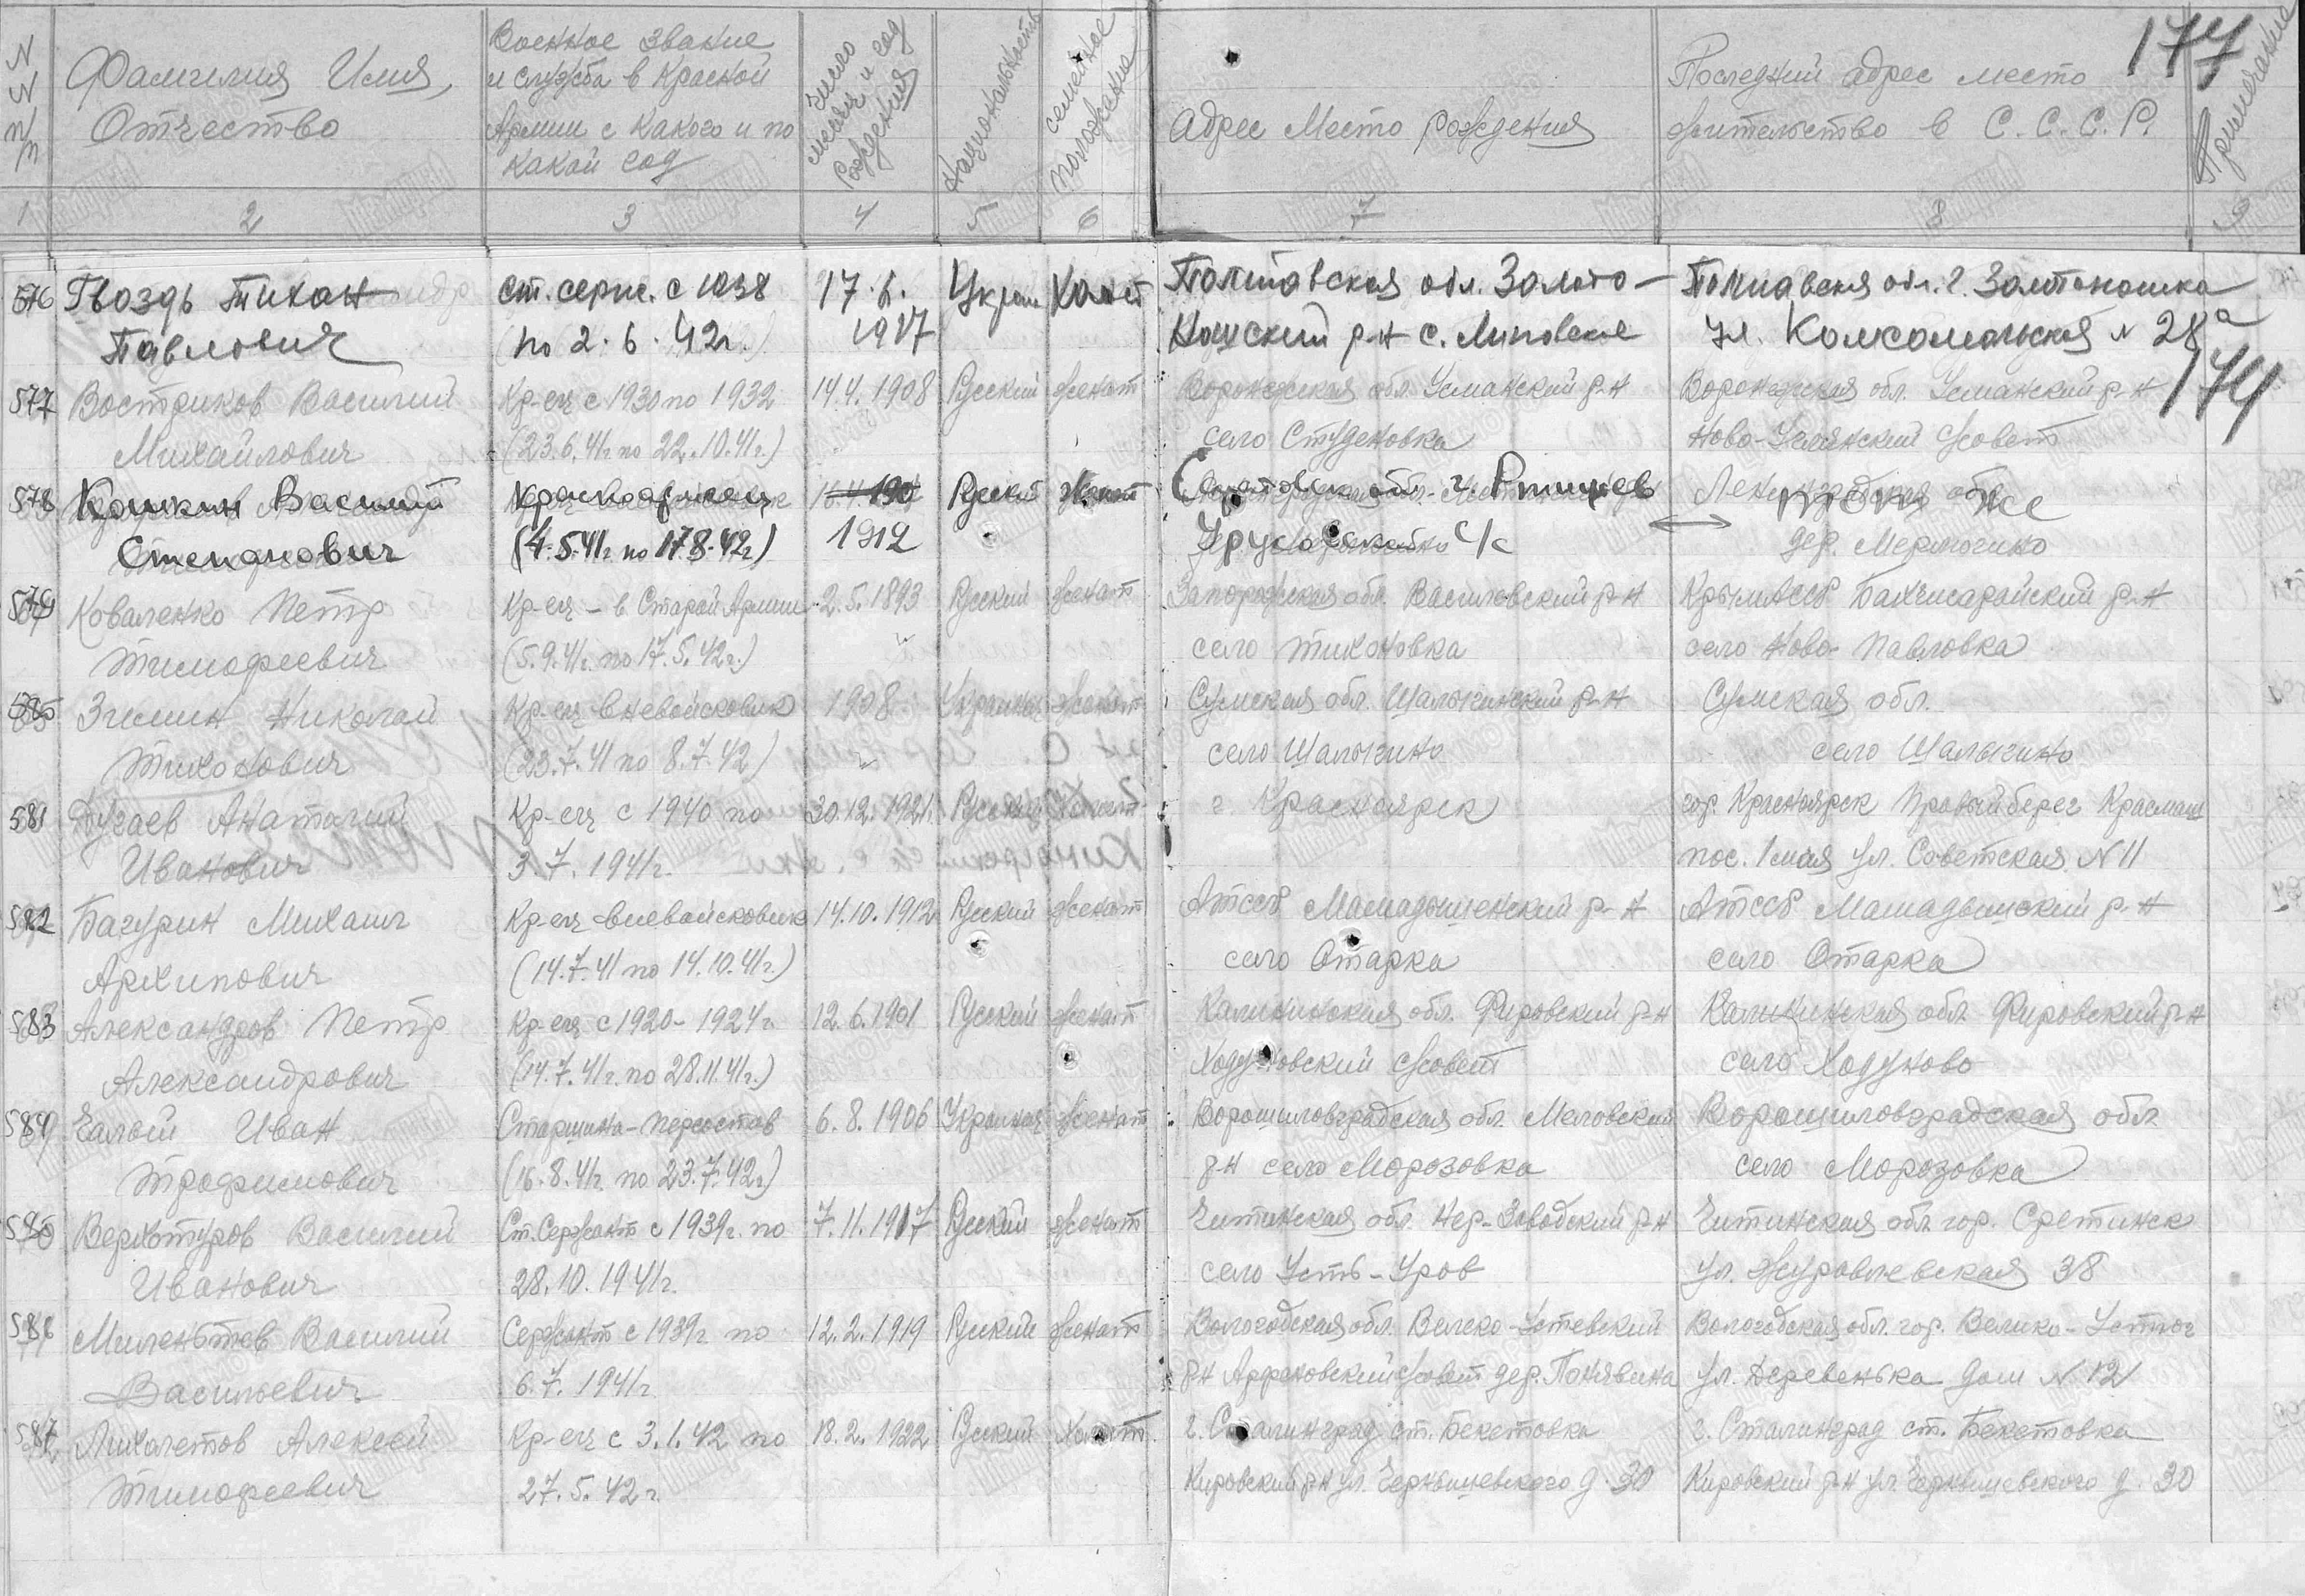 177
N N п/п
Фамилия Имя, Отчество
Военное звание и служба в Красной Армии с какого и по какой год
Число месяц и год рождения
Национальность
Семейное положение
Адрес Место рождения
Последний адрес место жительство в С.С.С.Р.
Примечание
1 2 3 4 5 6 7 8 9
576 Гвоздь Тихон ст. серж. с 1938 17.6. Украин Холост Полтавская обл. Золото- Полтавская обл. г. Золотоношка
Павлович (по 2.6.42г.) 1917 Ношский р-н с. Липовское ул. Комсомольская N 28а
174
577 Востриков Василий Кр-ец с 1930 по 1932 14.4.1908 Русский женат Воронежская обл. Усманский р-н Воронежская обл. Усманский р-н
Михайлович (23.6.41г по 22.10.41г.) село Студеновка Ново-Углянский с/совет
578 Кошкин Василий красноармеец Русский женат Саратовск обл. г. Ртищев то же
Степанович (4.5.41г по 17.8.42г) 1912 Урусовский с/с дер. Мерлогино
579 Коваленко Петр Кр-ец - в Старой Армии 2.5.1893 Русский женат Запорожская обл. Василовский р-н Крым АССР Бахчисарайский р-н
Тимофеевич (5.9.41г. по 17.5.42г.) село Тихоновка село Ново-Павловка
580 Зимин Николай Кр-ец вневойсковик 1908 Украинец женат Сумская обл. Шалыгинский р-н Сумская обл.
Тихонович (23.7.41 по 8.7.42) село Шалыгино село Шалыгино
581 Дугаев Анатолий Кр-ец с 1940 по 30.12.1921. Русский Холост г Красноярск гор. Красноярск Правый берег Красмаш
Иванович 3.7.1941г. пос. 1 мая ул. Советская N 11
582 Багурин Михаил Кр-ец вневойсковик 14.10.1912 Русский женат АТССР Мамадышенский р-н АТССР Мамадышский р-н
Архипович (14.7.41 по 14.10.41г.) село Отарка село Отарка
583 Александров Петр Кр-ец с 1920-1924г. 12.6.1901 Русский женат Калининская обл. Фировский р-н Калининская обл. Фировский р-н
Александрович (14.7.41г. по 28.11.41г.) Ходуновский с/совет село Ходуново
584 Чалый Иван Старшина-перостав 6.8.1906 Украинец женат Ворошиловградская обл. Меловский Ворошиловградская обл
Трофимович (16.8.41г. по 23.7.42г.) р-н село Морозовка село Морозовка
585 Верхотуров Василий Ст. Сержант с 1939г. по 7.11.1917 Русский женат Читинская обл. Нер-Заводский р-н Читинская обл. гор. Сретинск
Иванович 28.10.1941г. село Усть-Уров ул. Журавлевская 38
586 Милентьев Василий Сержант с 1939г по 12.2.1919 Русский женат Вологодская обл. Велико-Устевский Вологодская обл. гор. Велико-Устюг
Васильевич 6.7.1941г. р-н Арженовский с/совет дер. Понявина ул. Деревенька дом N 12
587 Лихолетов Алексей Кр-ец с 3.1.42 по 18.2.1922 Русский Холост. г. Сталинград ст. Бекетовка г. Сталинград ст. Бекетовка
Тимофеевич 27.5.42г. Кировский р-н ул. Чернышевского д. 30 Кировский р-н ул. Чернышевского д. 30